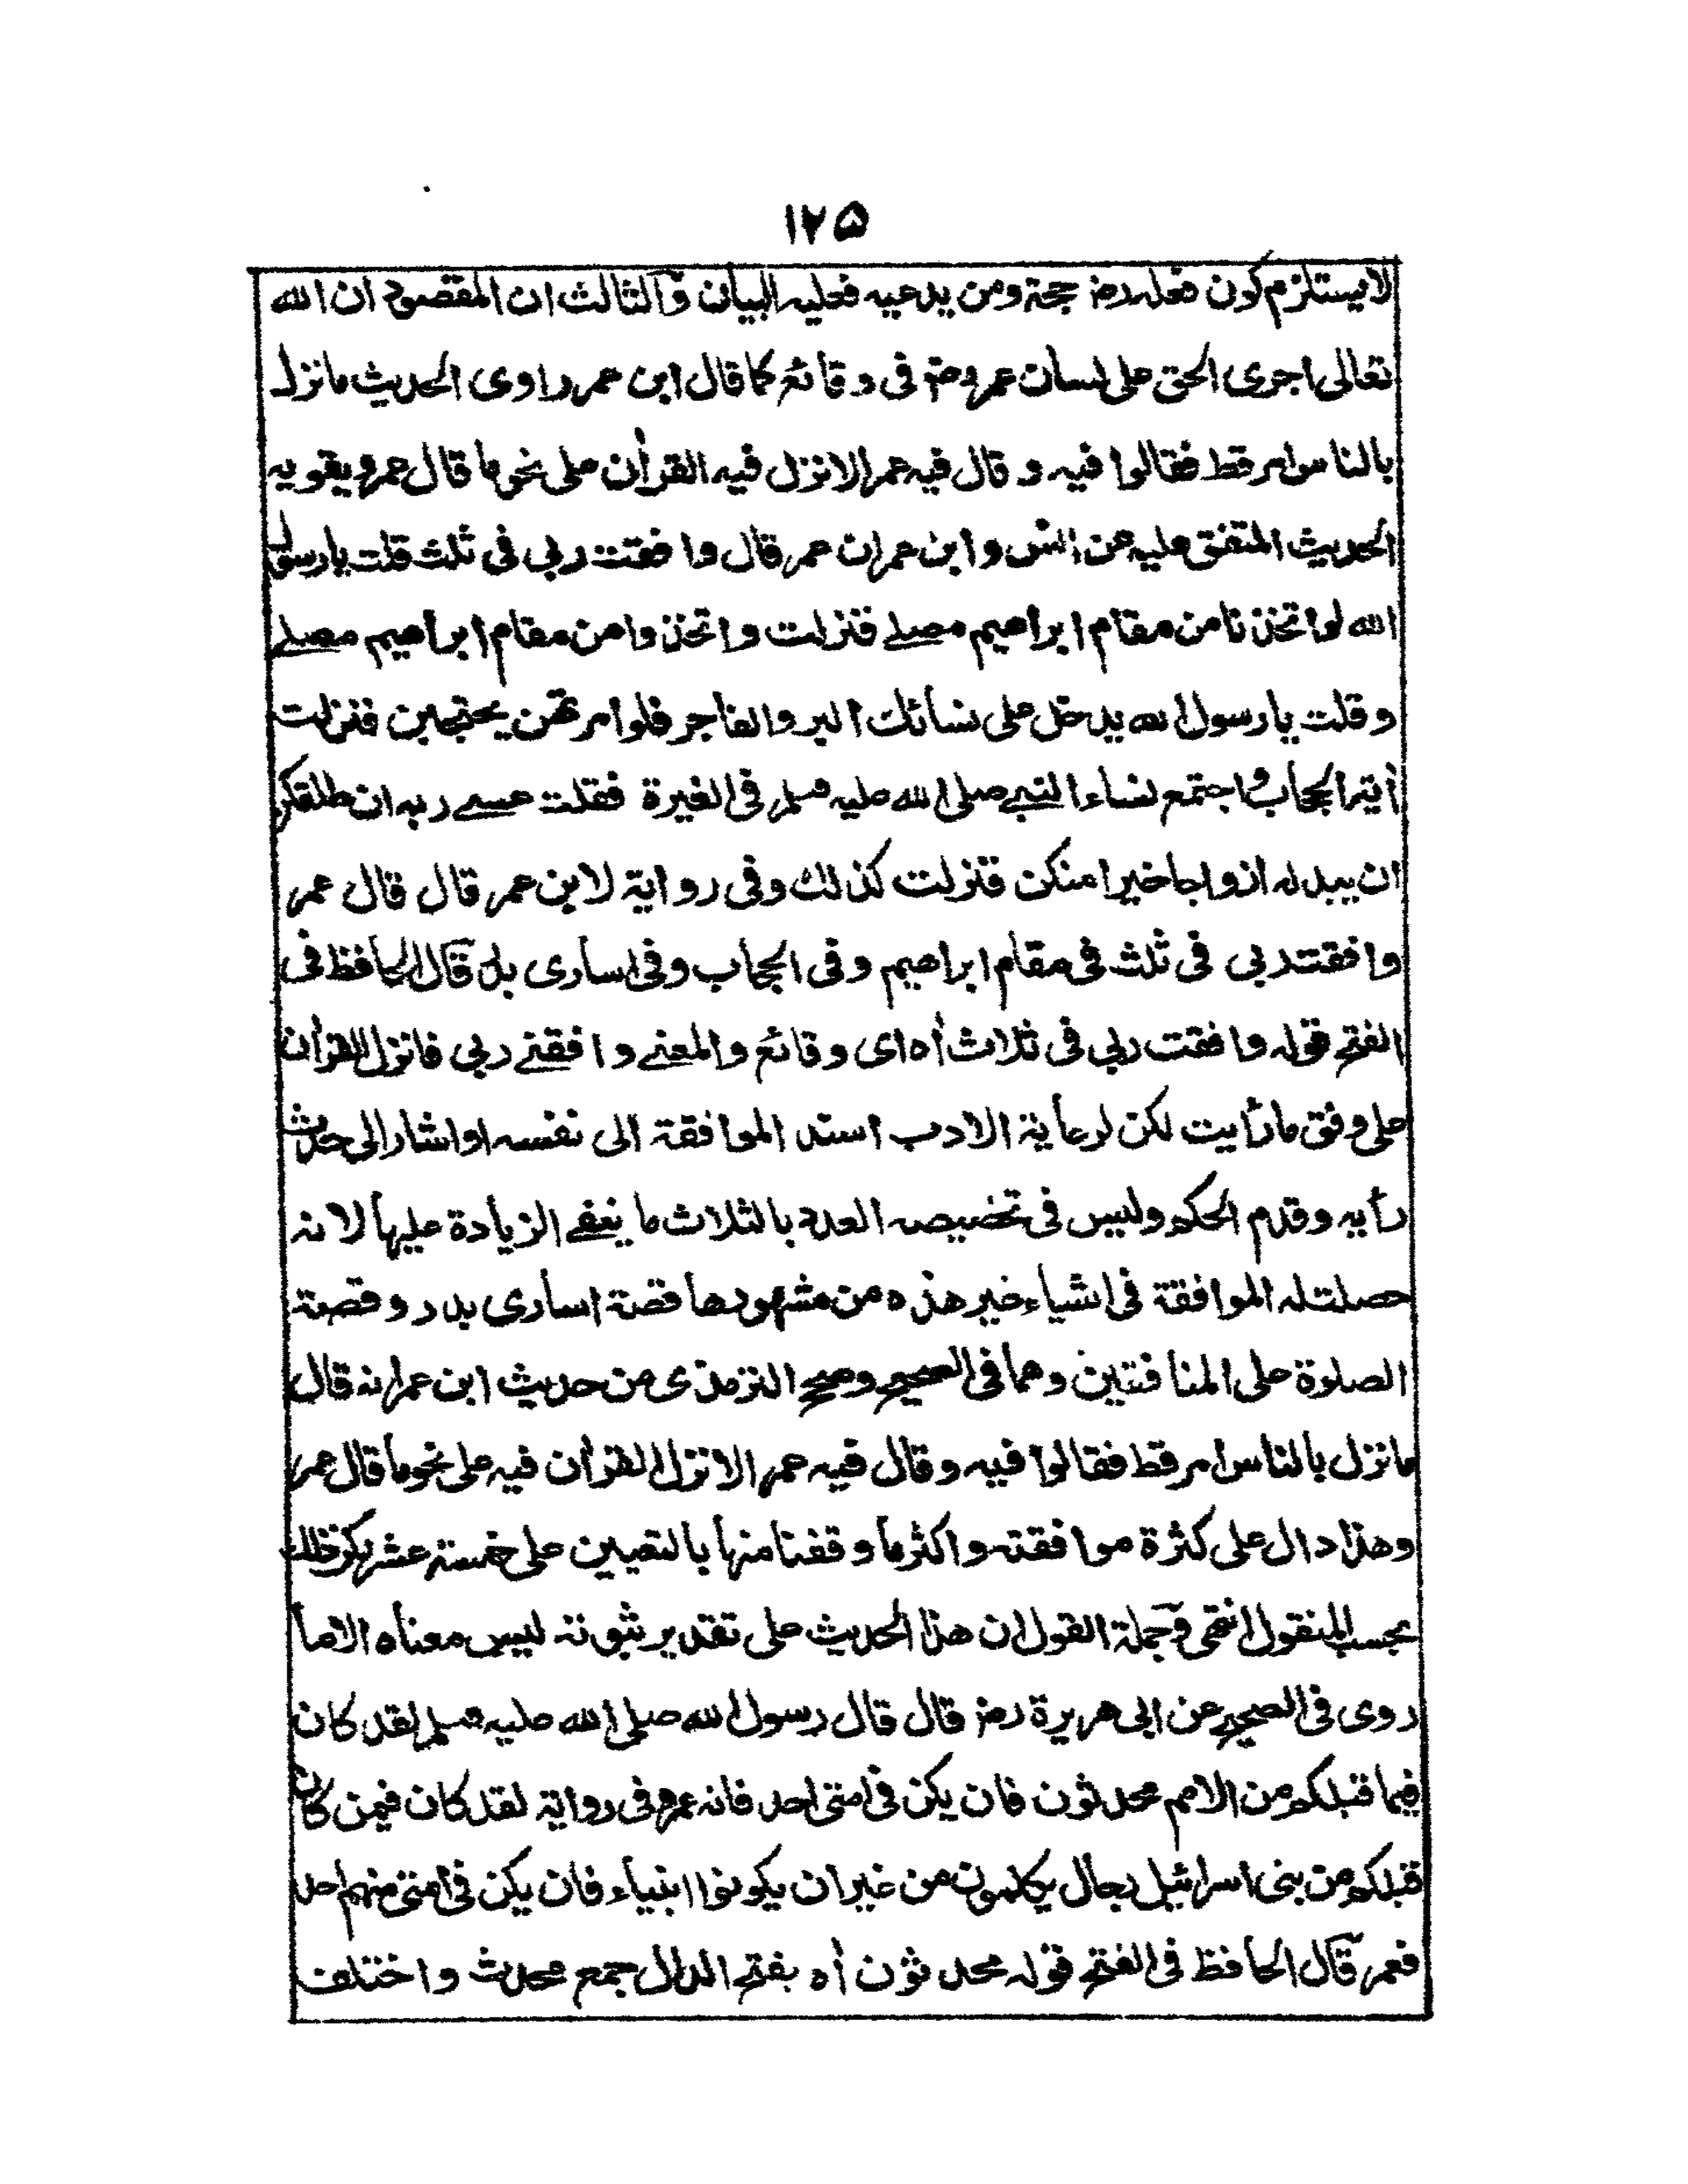 ١٢٥
لا يستلزم كون فعله رض حجة ومن يدعيه فعليه البيان والثالث ان المقصود ان الله
تعالى اجرى الحق على لسان عمر رض فى وقائع كما قال ابن عمر راوى الحديث ما نزل
بالناس امر قط فقالوا فيه و قال فيه عمر الا نزل فيه القرأن على نحو ما قال عمر ويقويه
الحديث المتفق عليه عن انس و ابن عمر ان عمر قال وافقت ربى فى ثلث قلت يا رسول
الله لو اتخذنا من مقام ابراهيم مصلے فنزلت واتخذوا من مقام ابراهيم مصلے
وقلت يا رسول الله يدخل على نسائك البر والفاجر فلو امرتهن يحتجبن فنزلت
أية الحجاب واجتمع نساء النبے صلى الله عليه وسلم فى الغيرة فقلت عسے ربه ان طلقكن
ان يبدله ازواجا خيرا منكن فنزلت كذلك وفى رواية لابن عمر قال قال عمر
وافقت ربى فى ثلث فى مقام ابراهيم وفى الحجاب وفى اسارى بدر قال الحافظ فى
الفتح قوله وافقت ربى فى ثلاث أه اى وقائع والمعنے وافقنے ربى فانزل القرأن
على وفق ما رأيت لكن لرعاية الادب اسند الموافقة الى نفسه او اشار الى حدث
رأيه وقدم الحكم وليس فى تخصيصه العدد بالثلاث ما ينفے الزيادة عليها لانه
حصلت له الموافقة فى اشياء غير هذه من مشهورها قصة اسارى بدر وقصة
الصلوة على المنافقين وهما فى الصحيح وصحح الترمذى من حديث ابن عمر انه قال
ما نزل بالناس امر قط فقالوا فيه وقال فيه عمر الا نزل القرأن فيه على نحو ما قال عمر
وهذا دال على كثرة موافقته واكثر ما وقفنا منها بالتعيين على خمسة عشر لكن ذلك
بحسب المنقول انتهى وجملة القول ان هذا الحديث على تقدير ثبوته ليس معناه الا ما
روى فى الصحيح عن ابى هريرة رض قال قال رسول الله صلى الله عليه وسلم لقد كان
فيما قبلكم من الامم محدثون فان يكن فى امتى احد فانه عمر وفى رواية لقد كان فيمن كان
قبلكم من بنى اسرائيل رجال يكلمون من غير ان يكونوا انبياء فان يكن فى امتى منهم احد
فعمر قال الحافظ فى الفتح قوله محدثون أه بفتح الدال جمع محدث واختلف